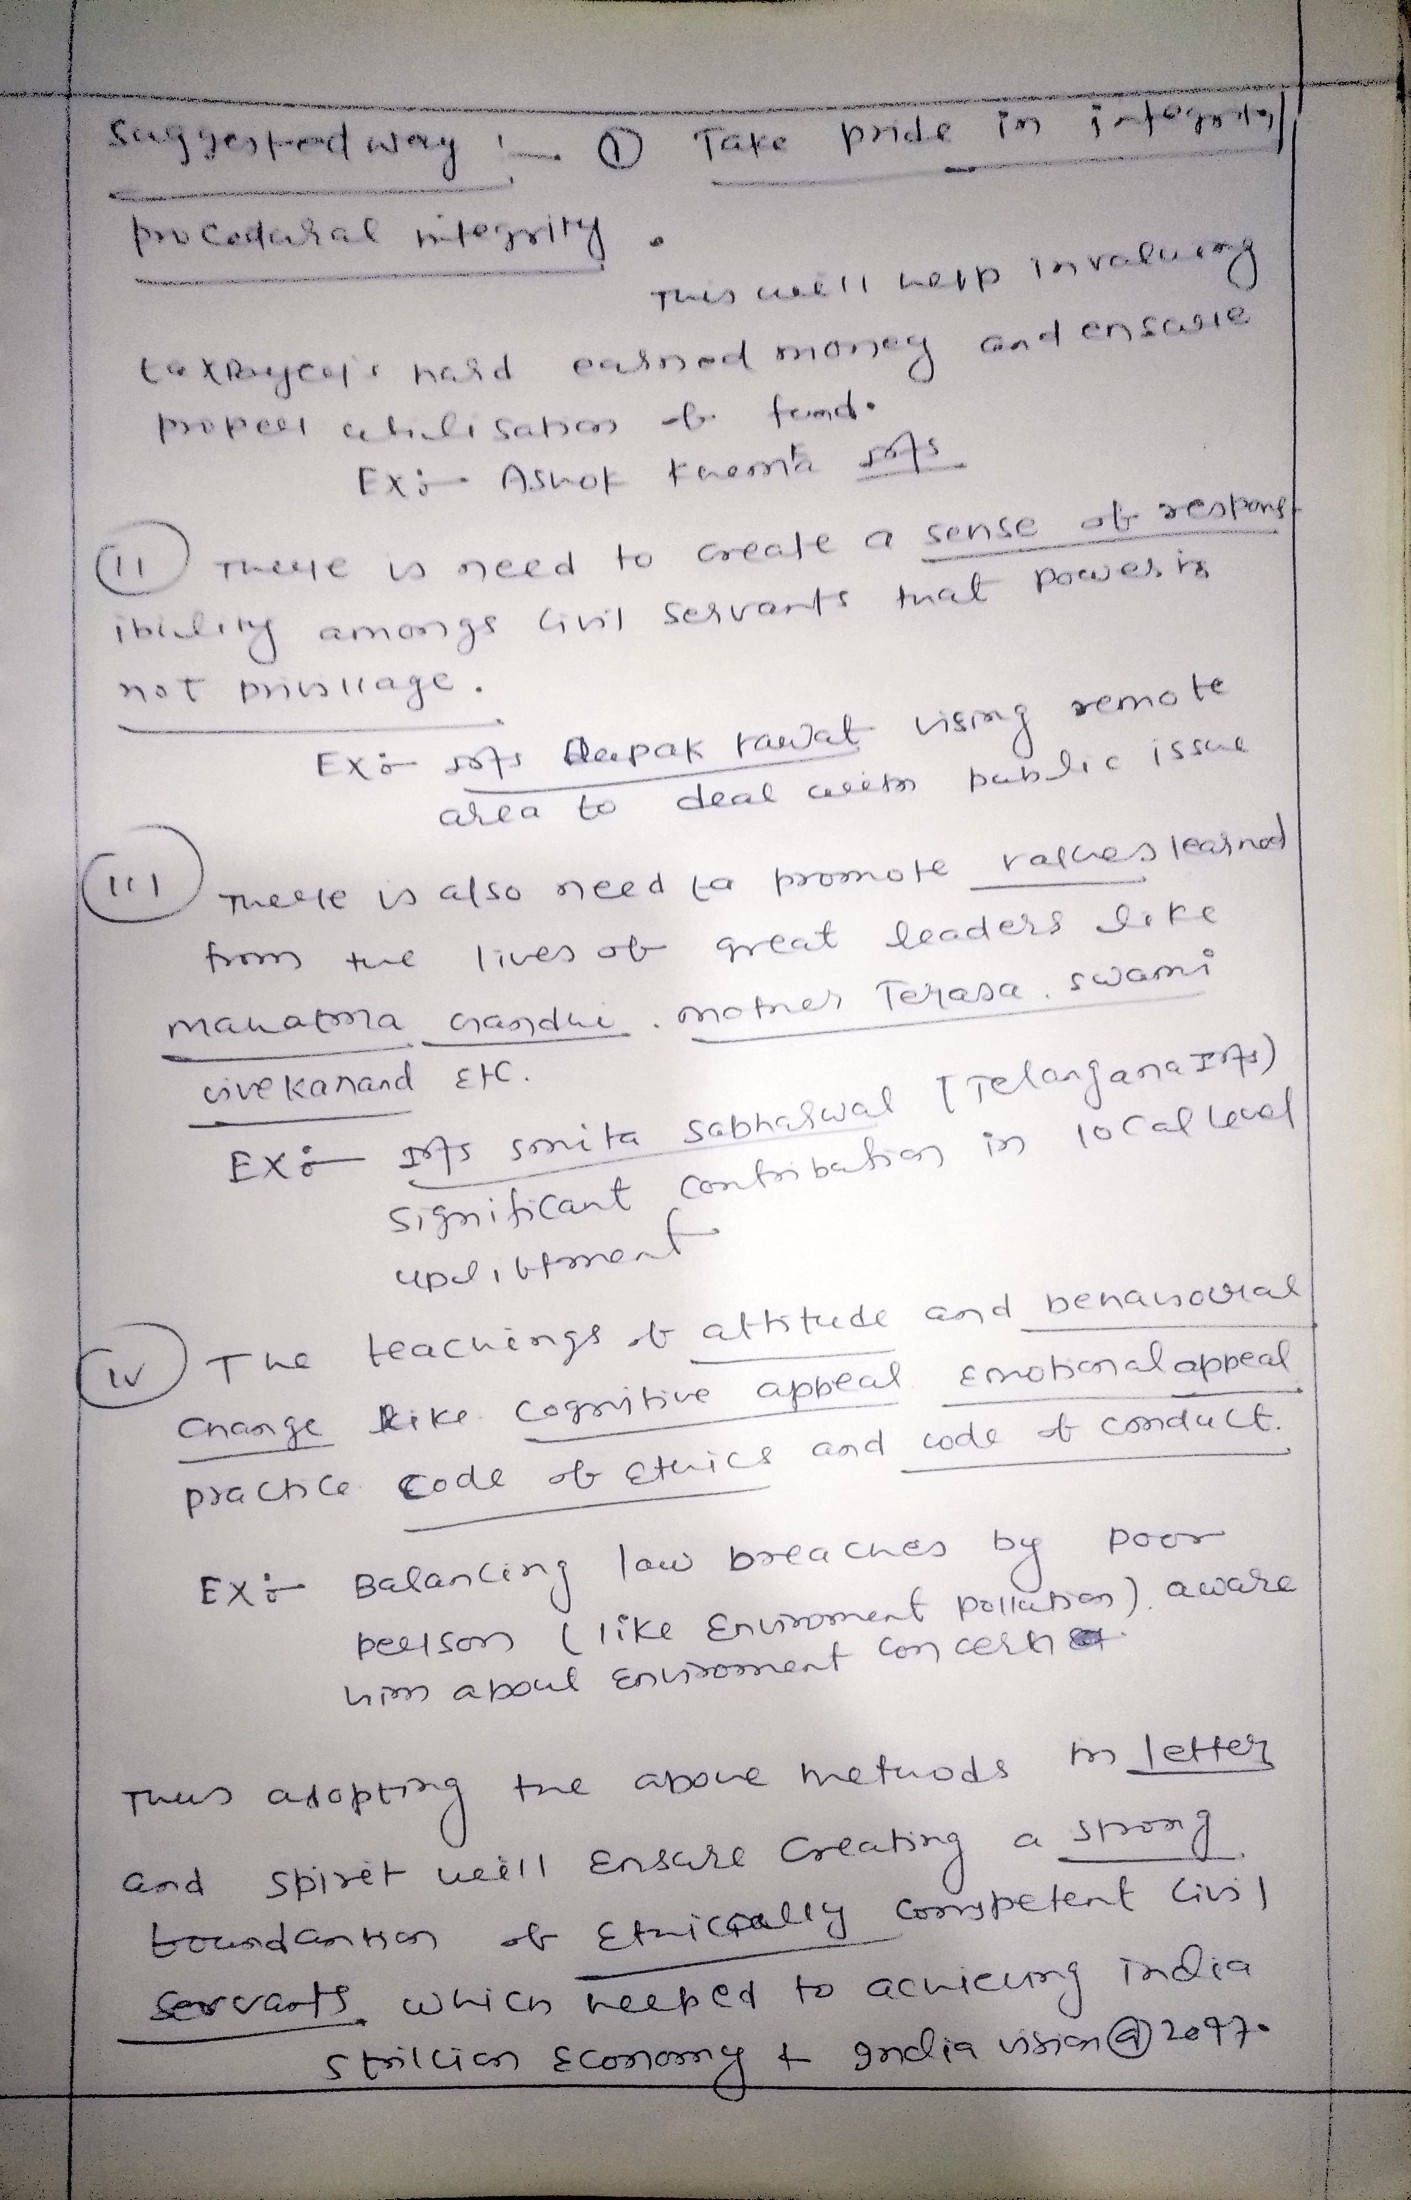 Suggested way :- ① Take pride in integrity
procedural integrity .
This will help in valueing
taxpayer's hard earned money and ensure
proper utilisation of fund.
Ex:- Ashok Khemka IAS
(ii) There is need to create a sense of respons-
ibility amongs civil servants that power is
not privillage.
Ex:- IAS Deepak rawat vising remote
area to deal with public issue
(iii) There is also need to promote values learned
from the lives of great leaders like
mahatma Gandhi, mother Terasa, swami
vivekanand Etc.
Ex:- IAS smita sabharwal [Telangana IAS)
significant contribution in local level
upliftment
(iv) The teachings of attitude and behavioural
change like cognitive appeal, Emotional appeal
practice code of Ethics and code of conduct.
Ex:- Balancing law breaches by poor
person (like Enviroment pollution), aware
him about Enviroment concern
Thus adopting the above methods in letter
and spirit will Ensure Creating a strong
foundantion of Ethically competent civil
servants which helped to achieving india
5 trillion Economy + India vision@2047.